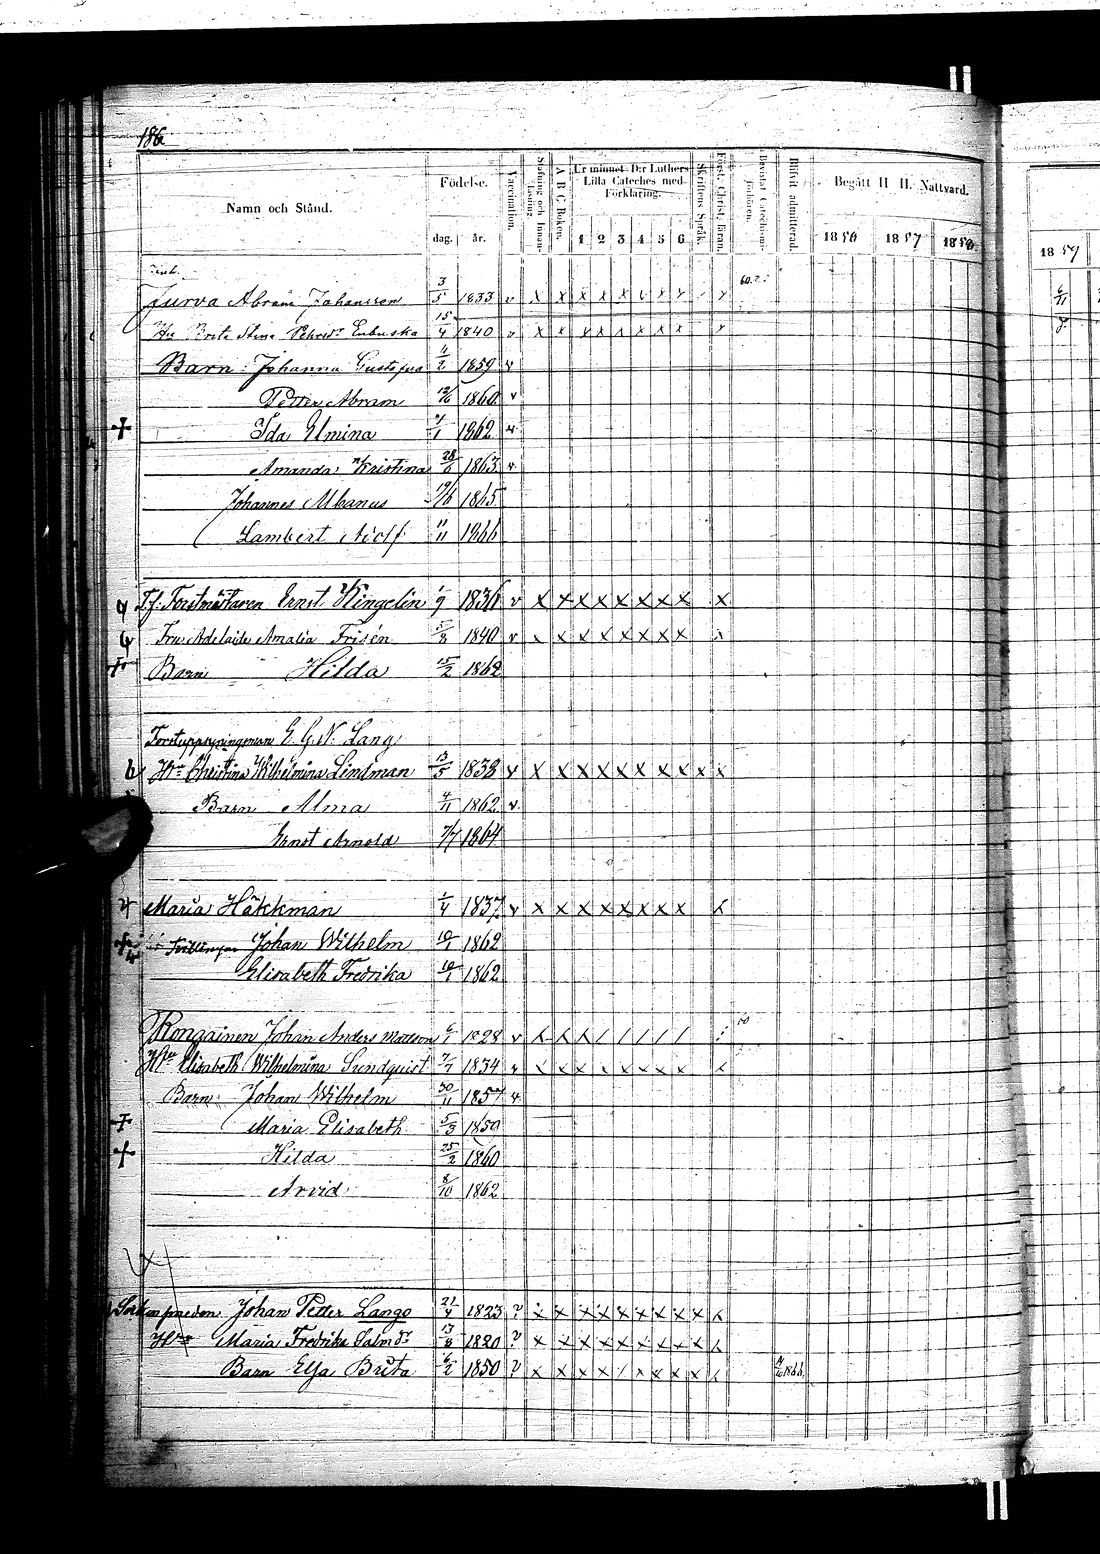 186
Namn och Stånd. Födelse. dag. år. Vaccination. Stafning och Innanläsning. A B C Boken. Ur minnet D:r Luthers Lilla Cateches med Förklaring. 1 2 3 4 5 6 Skriftens Språk. Först. Christ. läran. Bevistat Catechismi-förhören. Blifvit admitterad. Begått H. H. Nattvard. 1856 1857 1858
1859
Jurva Abram Johansson 3/5 1833 v x x x x x x x x
Hu Brita Stina 15/4 1840 v x x x x x x x x
Barn: Johanna Gustafva 4/2 1859 v
Petter Abram 12/6 1860 v
+ Ida Elmina 1862 v
Amanda Kristina 28/6 1863 v
Johannes Albanus 19/6 1865
Lambert Adolf 11/11 1866
T.f. Forstmästaren Ernst Wingelin 1/9 1836 v x x x x x x x x x
Fru Adelaide Amalia Frisén 5/8 1840 v x x x x x x x x x
+ Barn Hilda 15/2 1862
Forstuppsyningsman E. G. N. Lang
Hu Christina Wilhelmina Lindman 13/5 1838 v x x x x x x x x x x
Barn Alma 4/11 1862 v
Ernst Arnold 7/7 1864
Maria Häkkman 1/4 1837 v x x x x x x x x x
+ Tvillingar Johan Wilhelm 10/1 1862
Elisabeth Fredrika 10/1 1862
Rongainen Johan Anders Mattsson 6/1 1828 v x x x / / / / /
Hu Elisabeth Wilhelmina Sundquist 7/7 1834 v x x x x x x x x x
Barn: Johan Wilhelm 30/11 1857 v
+ Maria Elisabeth 5/3 1859
+ Hilda 25/2 1860
Arvid 8/10 1862
Johan Petter Lango 21/4 1823 ? x x x x x x x x x x
Hu Maria Fredrika Salmdr 13/8 1820 ? x x x x x x x x x x
Barn Elsa Brita 6/2 1850 ? x x x x / x x x x x 1866